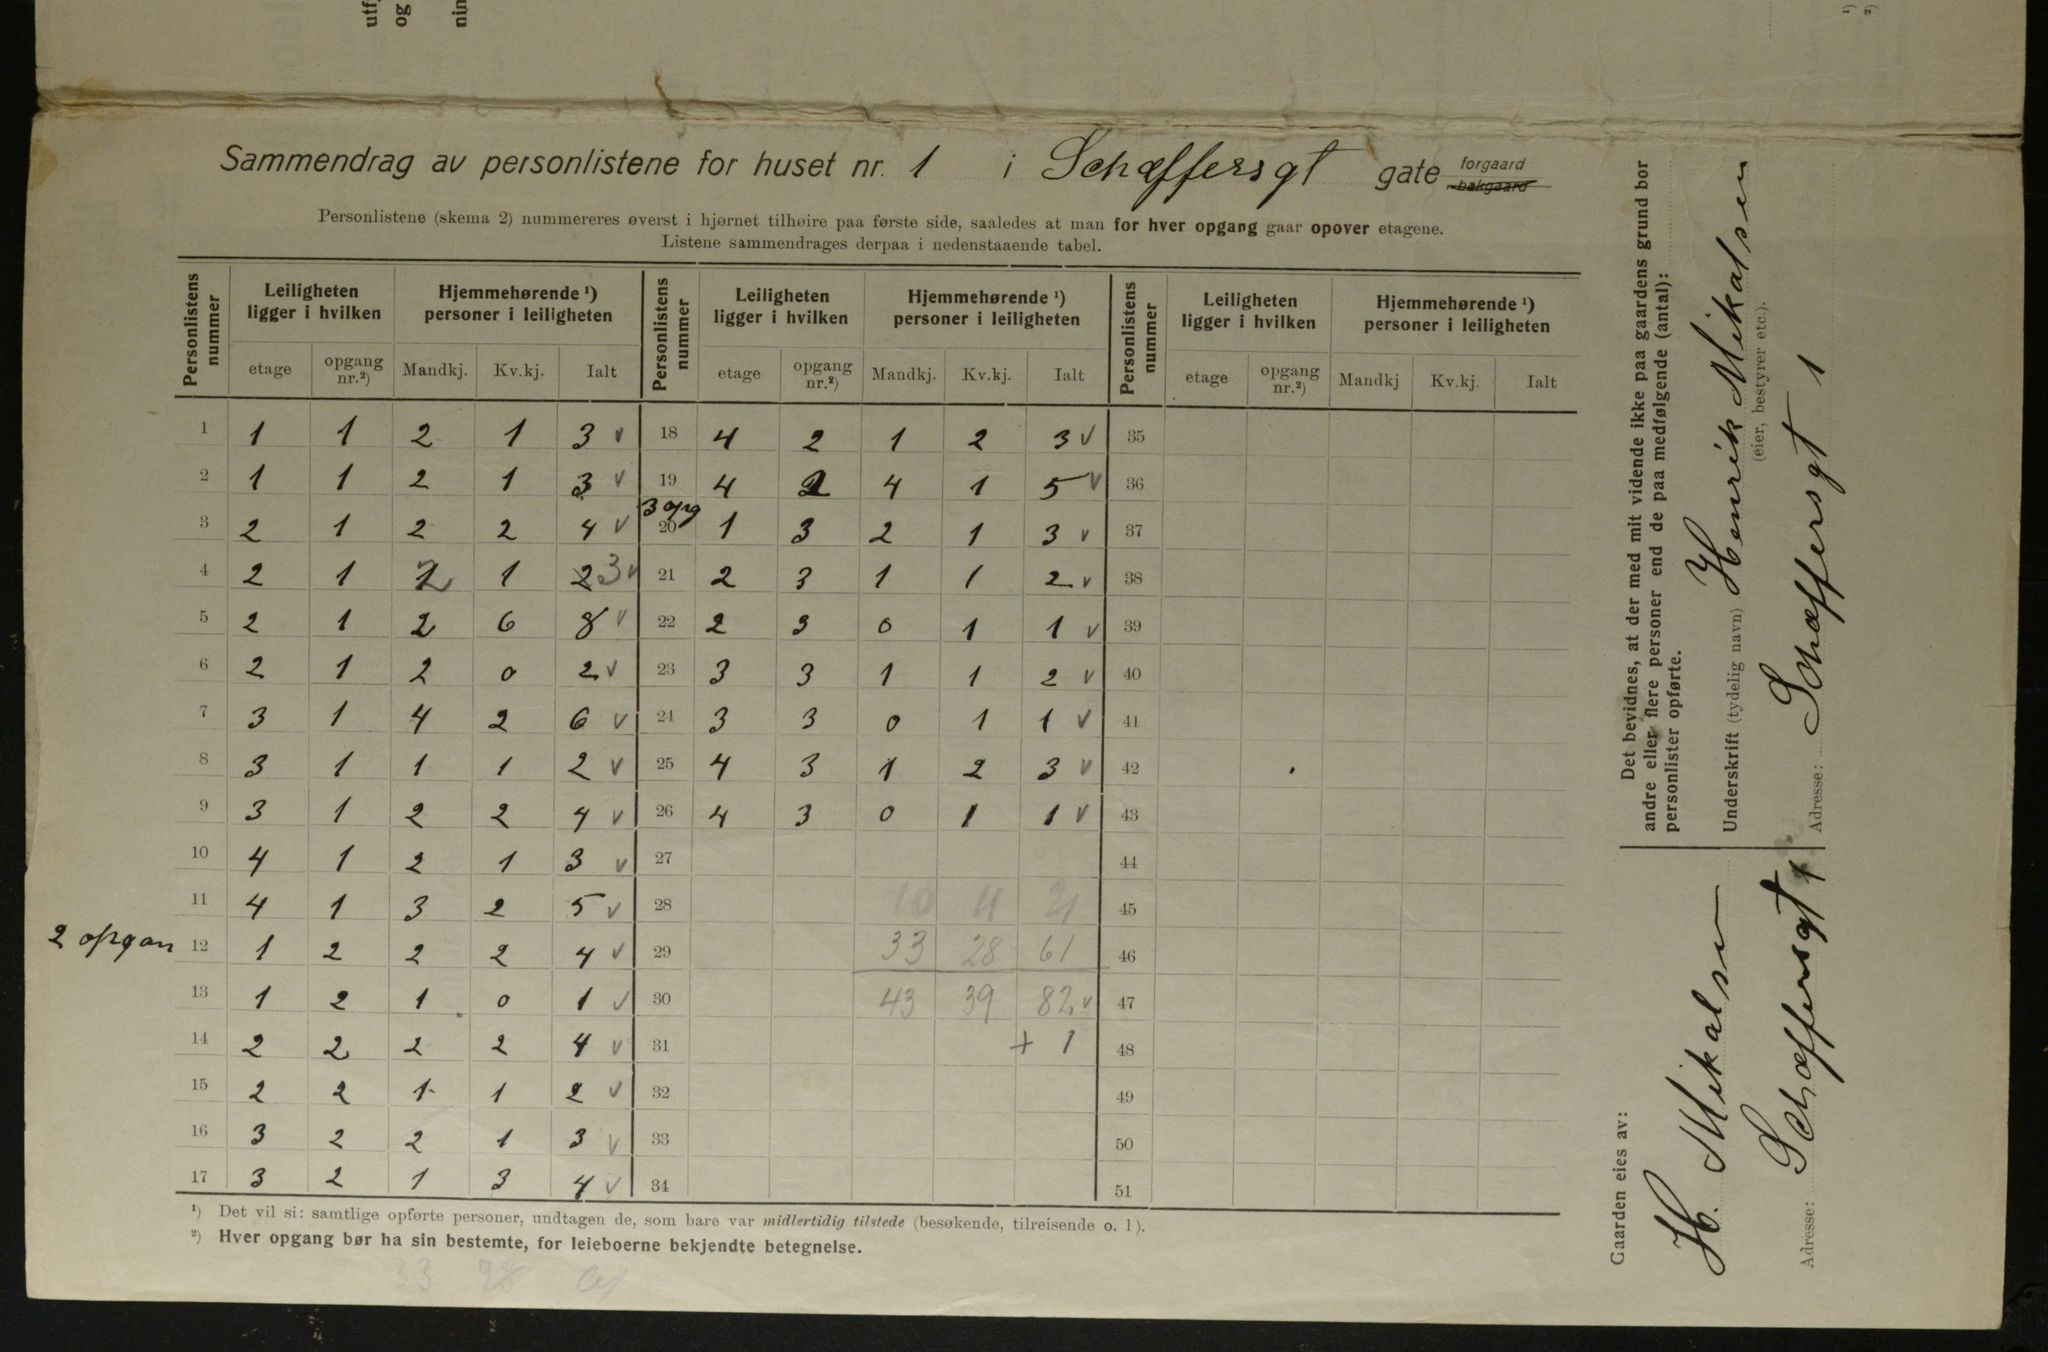 Sammendrag av personlistene for huset nr. 1 i Schæffersgt gate forgaard bakgaard
Personlistene (skema 2) nummereres øverst i hjørnet tilhøire paa første side, saaledes at man for hver opgang gaar opover etagene.
Listene sammendrages derpaa i nedenstaaende tabel.
Personlistens nummer | Leiligheten ligger i hvilken | Hjemmehørende ¹) personer i leiligheten | Personlistens nummer | Leiligheten ligger i hvilken | Hjemmehørende ¹) personer i leiligheten | Personlistens nummer | Leiligheten ligger i hvilken | Hjemmehørende ¹) personer i leiligheten
etage | opgang nr.²) | Mandkj. | Kv.kj. | Ialt | etage | opgang nr.²) | Mandkj. | Kv.kj. | Ialt | etage | opgang nr.²) | Mandkj | Kv.kj. | Ialt
1 | 1 | 1 | 2 | 1 | 3 v | 18 | 4 | 2 | 1 | 2 | 3 v | 35
2 | 1 | 1 | 2 | 1 | 3 v | 19 | 4 | 2 | 4 | 1 | 5 v | 36
3 opg
3 | 2 | 1 | 2 | 2 | 4 v | 20 | 1 | 3 | 2 | 1 | 3 v | 37
4 | 2 | 1 | 2 | 1 | 2 3 v | 21 | 2 | 3 | 1 | 1 | 2 v | 38
5 | 2 | 1 | 2 | 6 | 8 v | 22 | 2 | 3 | 0 | 1 | 1 v | 39
6 | 2 | 1 | 2 | 0 | 2 v | 23 | 3 | 3 | 1 | 1 | 2 v | 40
7 | 3 | 1 | 4 | 2 | 6 v | 24 | 3 | 3 | 0 | 1 | 1 v | 41
8 | 3 | 1 | 1 | 1 | 2 v | 25 | 4 | 3 | 1 | 2 | 3 v | 42
9 | 3 | 1 | 2 | 2 | 4 v | 26 | 4 | 3 | 0 | 1 | 1 v | 43
10 | 4 | 1 | 2 | 1 | 3 v | 27 | 44
11 | 4 | 1 | 3 | 2 | 5 v | 28 | 10 | 11 | 21 | 45
2 opgan 12 | 1 | 2 | 2 | 2 | 4 v | 29 | 33 | 28 | 61 | 46
13 | 1 | 2 | 1 | 0 | 1 v | 30 | 43 | 39 | 82 v | 47
14 | 2 | 2 | 2 | 2 | 4 v | 31 | + 1 | 48
15 | 2 | 2 | 1 | 1 | 2 v | 32 | 49
16 | 3 | 2 | 2 | 1 | 3 v | 33 | 50
17 | 3 | 2 | 1 | 3 | 4 v | 34 | 51
¹) Det vil si: samtlige opførte personer, undtagen de, som bare var midlertidig tilstede (besøkende, tilreisende o. l).
²) Hver opgang bør ha sin bestemte, for leieboerne bekjendte betegnelse.
33 28 61
Det bevidnes, at der med mit vidende ikke paa gaardens grund bor
andre eller flere personer end de paa medfølgende (antal):
personlister opførte.
Underskrift (tydelig navn) Henrik Mikalsen
(eier, bestyrer etc.).
Adresse: Schæffersgt 1
Gaarden eies av:
H. Mikalsen
Adresse: Schæffersgt 1
utf
og
nin
¹)
²)